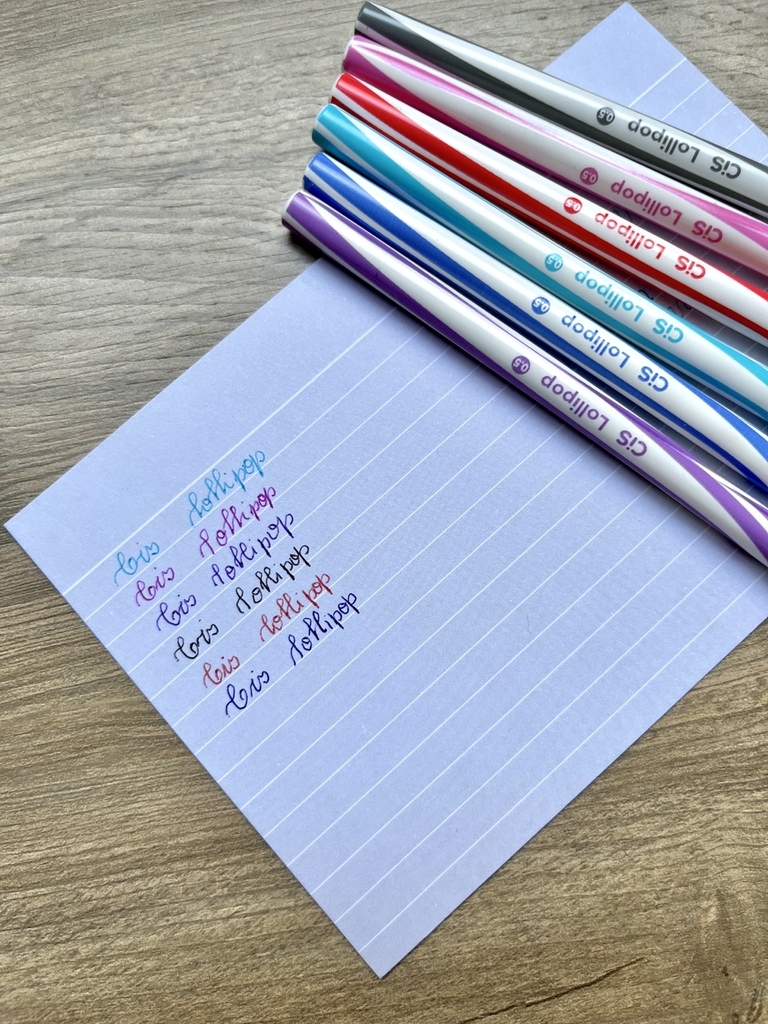 CiS Lollipop 0.5
CiS Lollipop 0.5
CiS Lollipop 0.5
CiS Lollipop 0.5
CiS Lollipop 0.5
CiS Lollipop 0.5
Cis lollipop
Cis lollipop
Cis lollipop
Cis lollipop
Cis lollipop
Cis lollipop